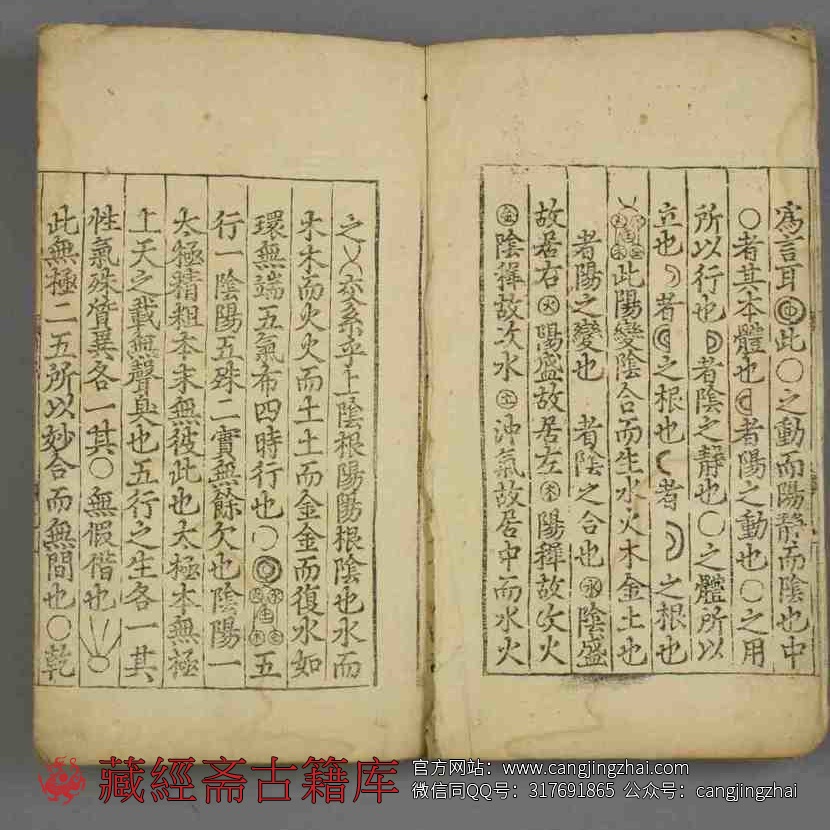 爲言耳此○之動而陽靜而陰也中
○者其本體也者陽之動也○之用
所以行也者陰之靜也○之體所以
立也者之根也者之根也
此陽變陰合而生水火木金土也
者陽之變也 者陰之合也㊌陰盛
故居右㊋陽盛故居左㊍陽穉故次火
㊎陰穉故次水㊏沖氣故居中而水火
之㐅交系乎上陰根陽陽根陰也水而
木木而火火而土土而金金而復水如
環無端五氣布四時行也○五
行一陰陽五殊二實無餘欠也陰陽一
太極精粗本末無彼此也太極本無極
上天之載無聲臭也五行之生各一其
性氣殊質異各一其○無假借也
此無極二五所以妙合而無間也○乾
藏經斋古籍库
官方网站：www.cangjingzhai.com
微信同QQ号：317691865 公众号：cangjingzhai